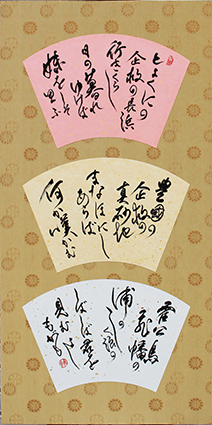 とよくにの
企救の長浜
行きくらし
日の暮れ
ゆけば
妹をしそ
思ふ
豊国の
企救の
真砂地
まなほにし
あらば
何か嘆かむ
霍公鳥
飛幡の
浦に
しく浪の
しばしば君を
見むよし
もがも